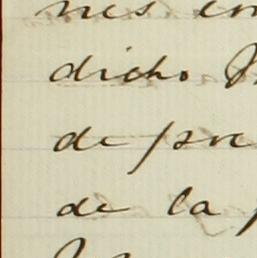 nes en
dicho
de pre
de la